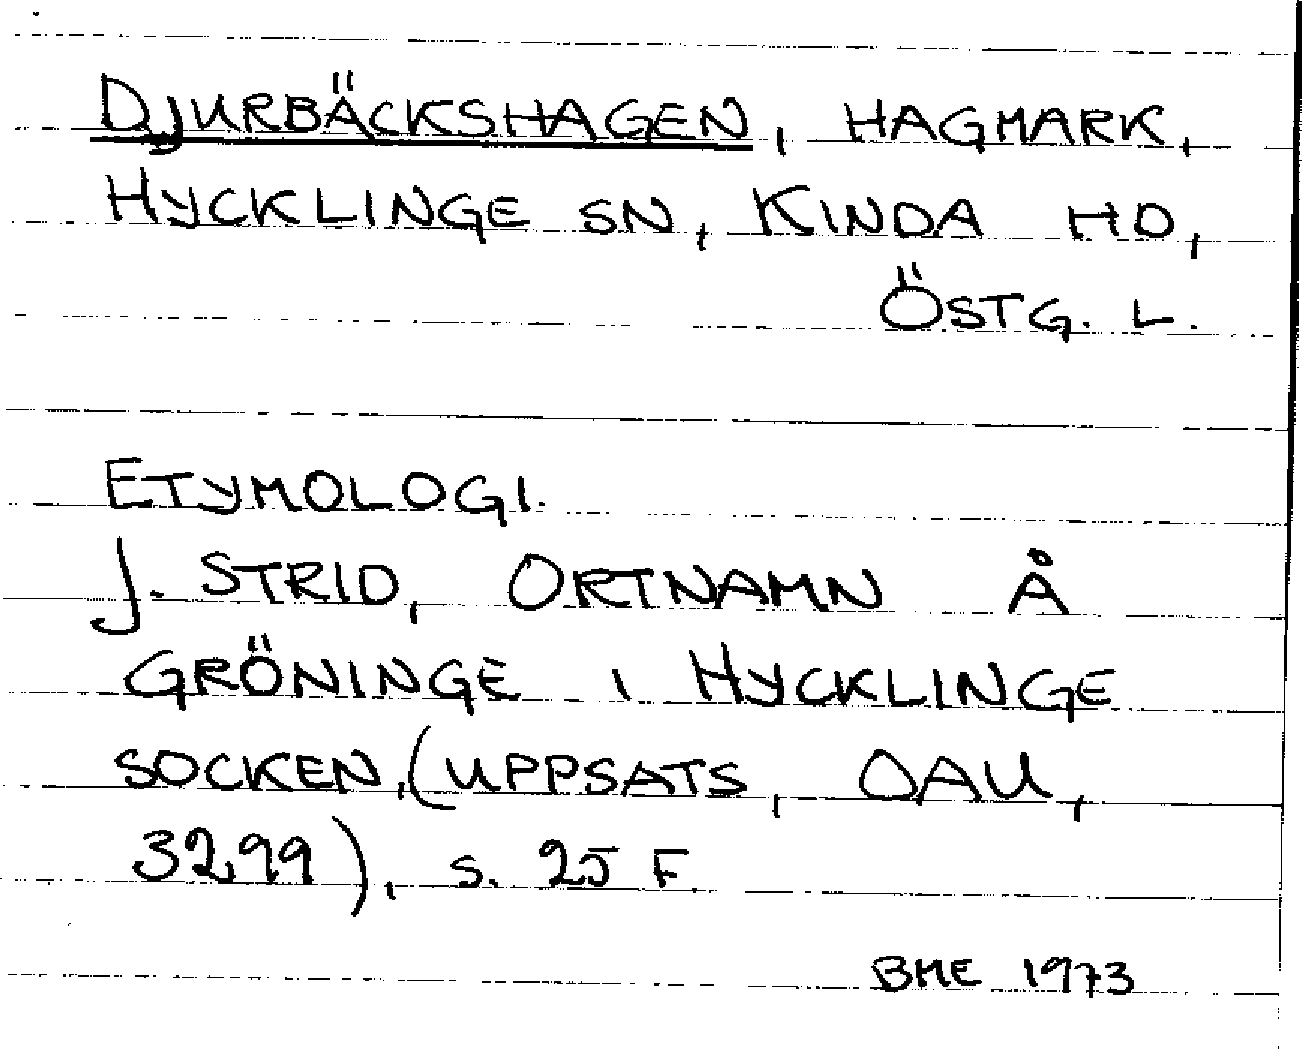 DJURBÄCKSHAGEN, HAGMARK,
HYCKLINGE SN, KINDA HD,
ÖSTG. L.
ETYMOLOGI.
J. STRID, ORTNAMN Å
GRÖNINGE I HYCKLINGE
SOCKEN, (UPPSATS, OAU,
3299), S. 25 F
BME 1973